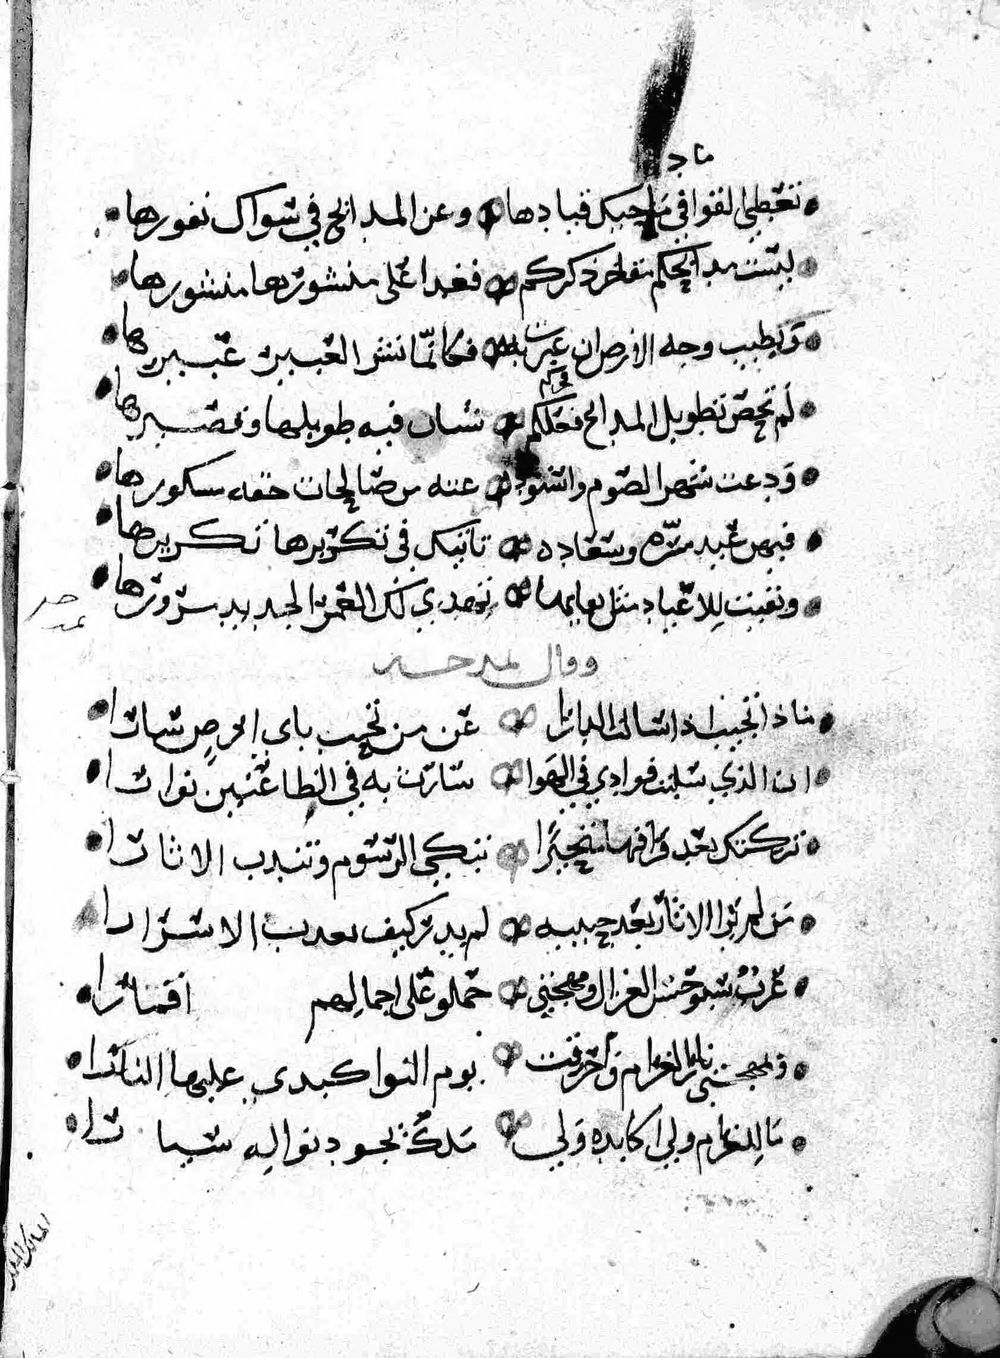 ماد
تعطي القوافي مادحيك قيادها وعن المدايح في سواك نفورها
ليست مدايحكم تفاخر ذكركم فغدا على منشورها منشورها
وتطيب وجه الارض ان عبرت به فكانما نشر العبير عبيرها
لم تحص تطويل المدايح فعلكم سيان فيه طويلها وقصيرها
ودعت شهر الصوم واستودعته من صالحات حقه مسكورها
فيهن عيد سره وسعاده تاتيك في تكريرها تكريرها
وبقيت للاعياد مثل بهايها تهدي لك العمر الجديد سرورها
وقال يمدحه
ماذا تجيب اذا سالت الدارا عن من تحب باي ارض سارا
ان الذي سلبت فوادي في الهوا سارت به في الظاعنين نوارا
تركتك بعد فراقها متحيرا تبكي الرسوم وتندب الاثارا
من لم يرى الاثار بعد حبيبه لم يدر كيف معدن الاسرارا
عرب سبو حسن الغزال ومهجتي حملو على اجمالهم اقمارا
في مهجتي نار الغرام واحرقت يوم النوا كبدي عليها النارا
ما للغرام ولي اكابده ولي ملك بجود نواله سيارا